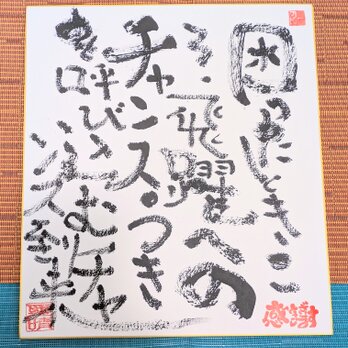 困ったときこ
そ飛躍への
チャンス。つき
を呼びこむチャ
ンス到来
感謝